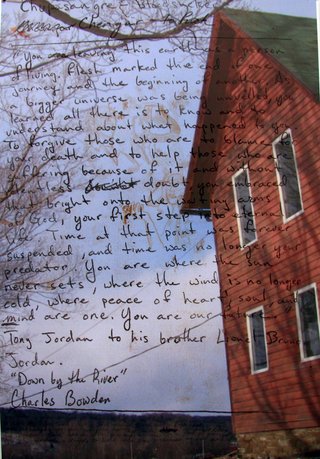 You are leaving this earth as a person
of living flesh marked the end of one
journey and the beginning of another. As
a bigger universe was being unveiled you
learned all there is to know and to
understand about what happened to you
To forgive those who are to blame for
your death and to help those who are
suffering because of it and without
doubt you embraced
the bright onto the waiting arms
of God, your first step to eternal
life. Time at that point was forever
suspended, and time was no longer your
predator. You are where the sun
never sets, where the wind is no longer
cold where peace of heart, soul, and
mind are one. You are our
Tony Jordan to his brother Lionel Bruno
Jordan.
"Down by the River"
Charles Bowden